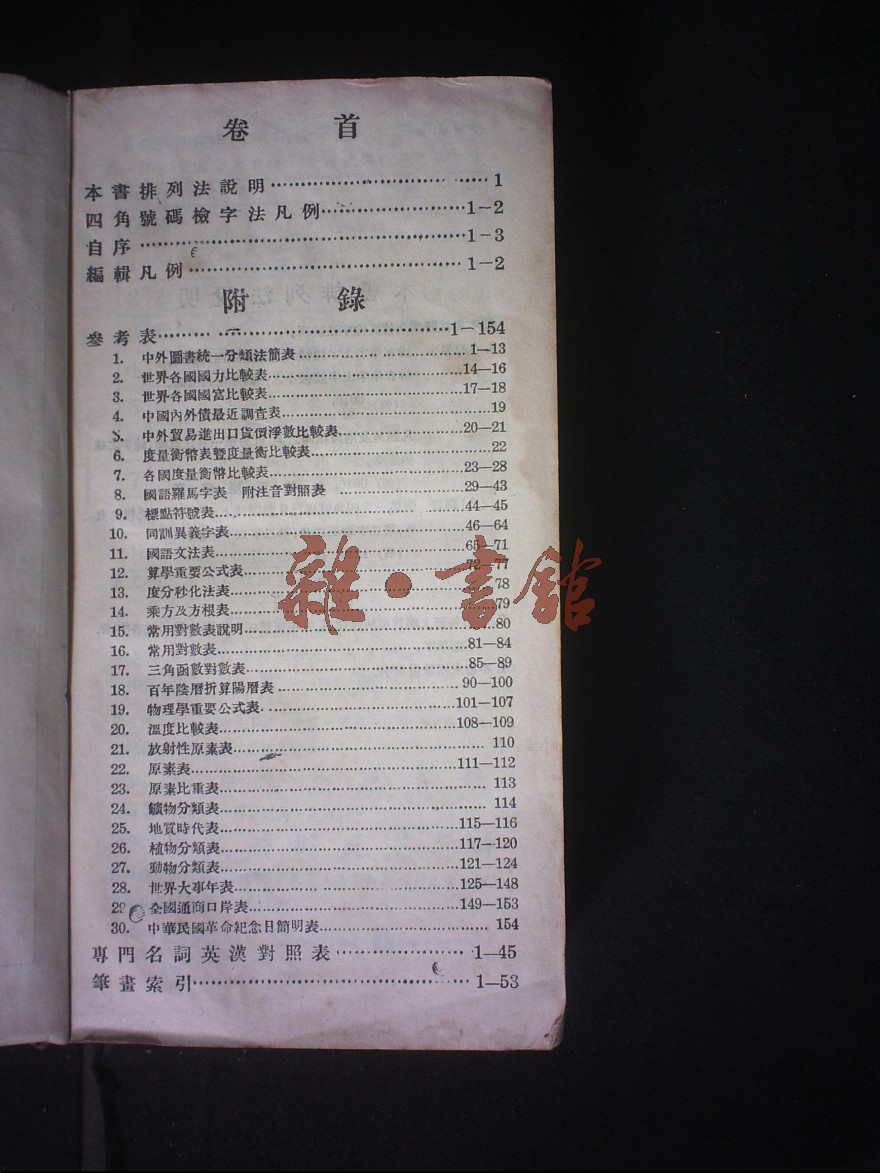 卷 首
本書排列法說明……………………1
四角號碼檢字法凡例……………………1-2
自序……………………1-3
編輯凡例……………………1-2
附 錄
參考表……………………1-154
1. 中外圖書統一分類法簡表……………………1—13
2. 世界各國國力比較表……………………14—16
3. 世界各國國富比較表……………………17—18
4. 中國內外債最近調查表……………………19
5. 中外貿易進出口貨價淨數比較表……………………20—21
6. 度量衡幣表暨度量衡比較表……………………22
7. 各國度量衡幣比較表……………………23—28
8. 國語羅馬字表 附注音對照表……………………29—43
9. 標點符號表……………………44—45
10. 同訓異義字表……………………46—64
11. 國語文法表……………………65—71
12. 算學重要公式表……………………72—77
13. 度分秒化法表……………………78
14. 乘方及方根表……………………79
15. 常用對數表說明……………………80
16. 常用對數表……………………81—84
17. 三角函數對數表……………………85—89
18. 百年陰曆折算陽曆表……………………90—100
19. 物理學重要公式表……………………101—107
20. 溫度比較表……………………108—109
21. 放射性原素表……………………110
22. 原素表……………………111—112
23. 原素比重表……………………113
24. 鑛物分類表……………………114
25. 地質時代表……………………115—116
26. 植物分類表……………………117—120
27. 動物分類表……………………121—124
28. 世界大事年表……………………125—148
29. 全國通商口岸表……………………149—153
30. 中華民國革命紀念日簡明表……………………154
專門名詞英漢對照表……………………1—45
筆畫索引……………………1—53
雜·書館